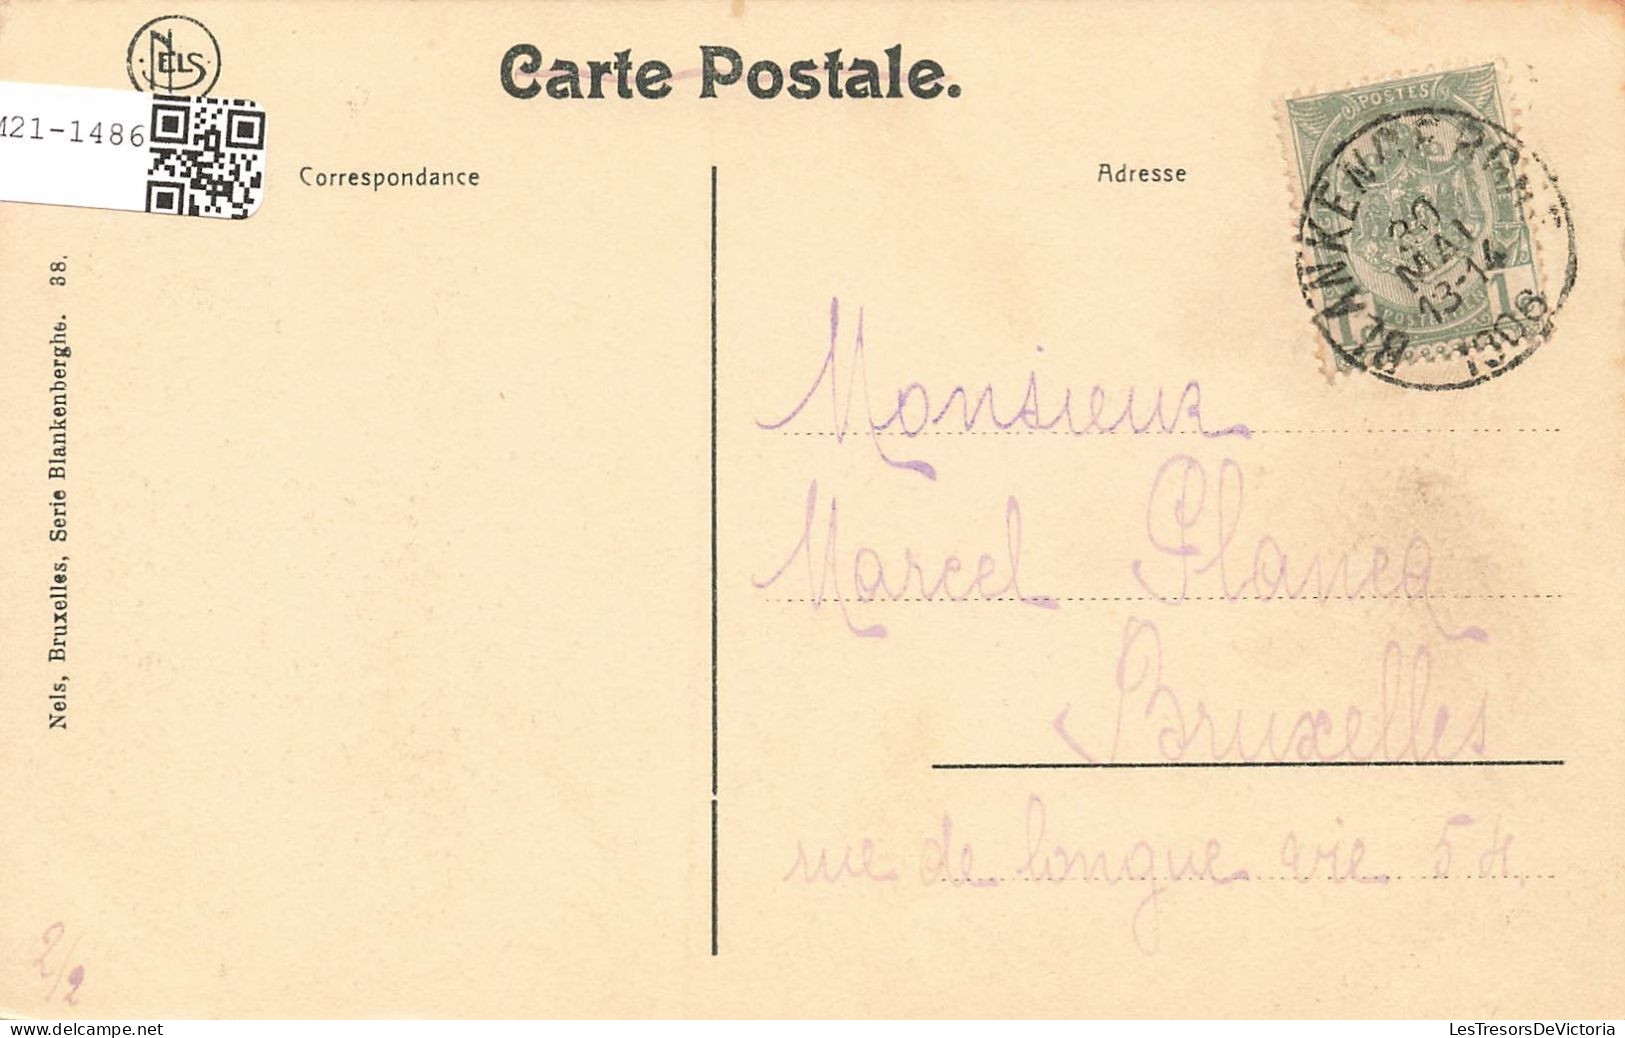 NELS
Carte Postale.
M21-1486
Correspondance
Adresse
POSTES
BLANKENBERGHE
20
MAI
13-14
1906
1 POSTERIJEN 1
Nels, Bruxelles, Serie Blankenberghe. 38.
Monsieur
Marcel Plancq
Bruxelles
rue de longue vie 54.
2/2
delcampe.net
LesTresorsDeVictoria